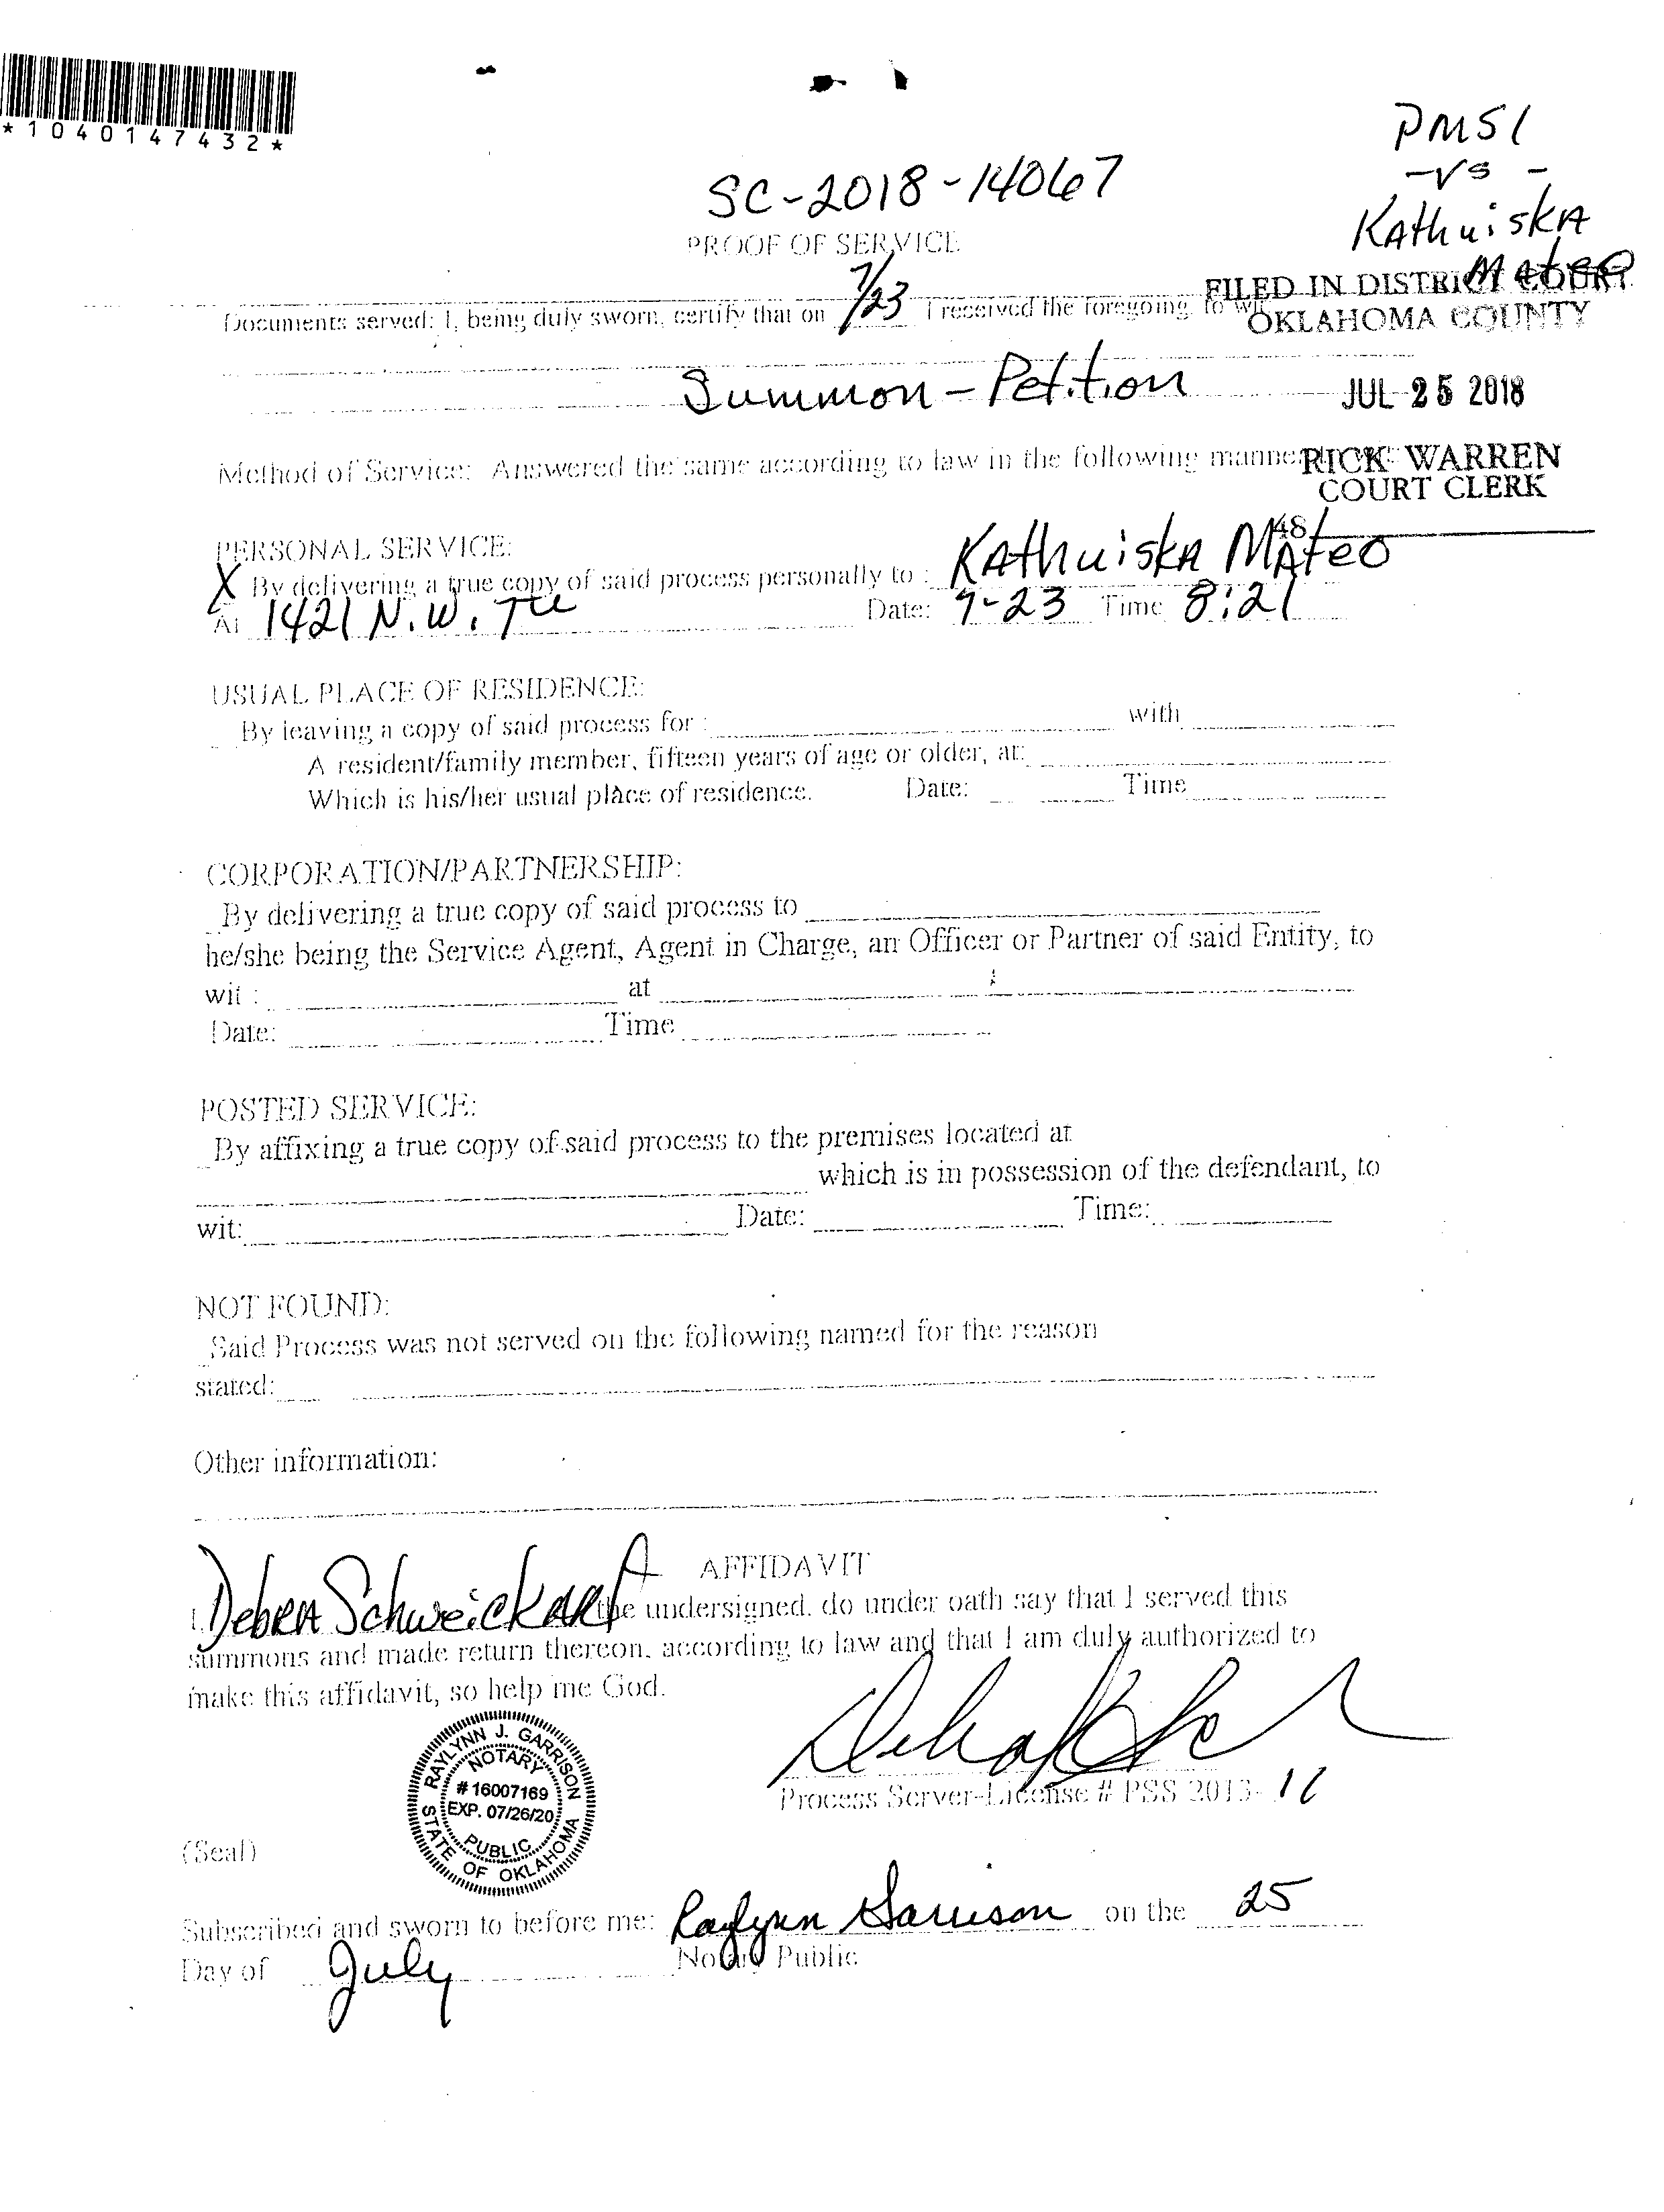 *1040147432*
PMSI
-VS-
KAthuiskA
Mateo
SC-2018-14067
PROOF OF SERVICE
FILED IN DISTRICT COURT
OKLAHOMA COUNTY
Documents served: I, being duly sworn, certify that on 7/23 I received the foregoing, to wit:
Summon-Petition
JUL 25 2018
Method of Service: Answered the same according to law in the following manner
RICK WARREN
COURT CLERK
48
PERSONAL SERVICE:
X By delivering a true copy of said process personally to : KAthuiskA MAteo
At 1421 N.W. Date: 7-23 Time 8:21
USUAL PLACE OF RESIDENCE:
_By leaving a copy of said process for : with
A resident/family member, fifteen years of age or older, at:
Which is his/her usual place of residence. Date: Time
CORPORATION/PARTNERSHIP:
_By delivering a true copy of said process to
he/she being the Service Agent, Agent in Charge, an Officer or Partner of said Entity, to
wit : at
Date: Time
POSTED SERVICE:
_By affixing a true copy of said process to the premises located at
which is in possession of the defendant, to
wit: Date: Time:
NOT FOUND:
_Said Process was not served on the following named for the reason
stated:
Other information:
AFFIDAVIT
I, DebRA SchweickARt the undersigned, do under oath say that I served this
summons and made return thereon, according to law and that I am duly authorized to
make this affidavit, so help me God.
RAYLYNN J. GARRISON
NOTARY
# 16007169
EXP. 07/26/20
PUBLIC
STATE OF OKLAHOMA
Process Server-License # PSS 2013- 11
(Seal)
Subscribed and sworn to before me: Raylynn Garrison on the 25
Day of July Notary Public